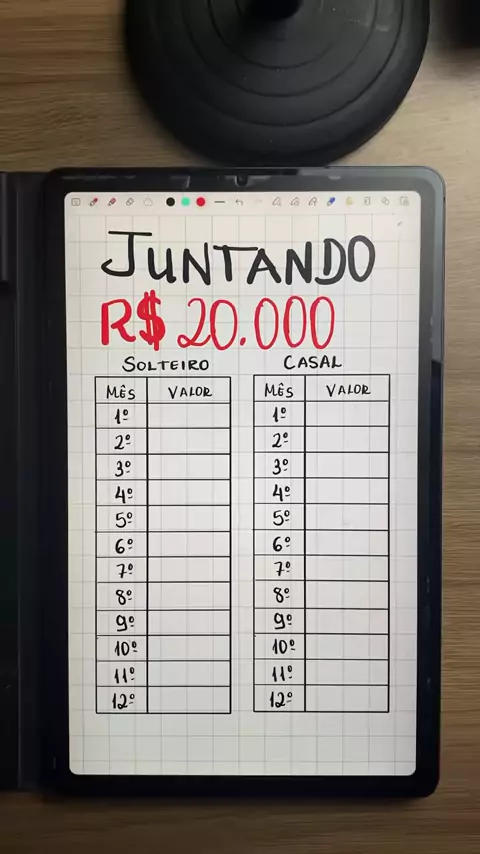 JUNTANDO
R$ 20.000
SOLTEIRO
MÊS VALOR
1º
2º
3º
4º
5º
6º
7º
8º
9º
10º
11º
12º
CASAL
MÊS VALOR
1º
2º
3º
4º
5º
6º
7º
8º
9º
10º
11º
12º